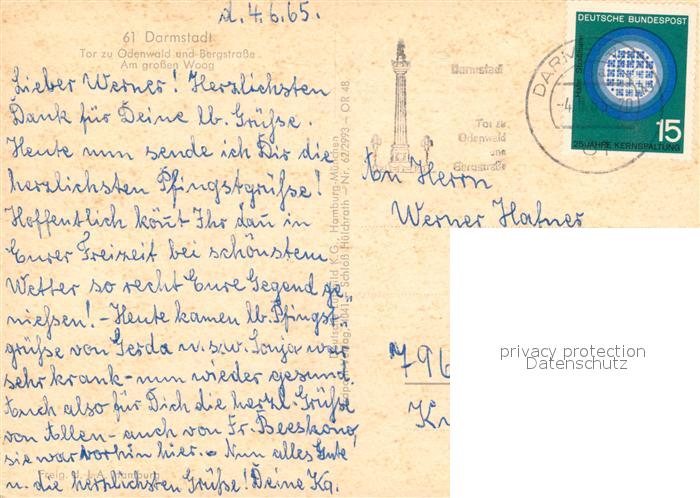 d. 4.6.65.
61 Darmstadt
Tor zu Odenwald und Bergstraße
Am großen Woog
Lieber Werner! Herzlichsten
Dank für Deine lb. Grüße.
Heute nun sende ich Dir die
herzlichsten Pfingstgrüße!
Hoffentlich könnt Ihr dann in
Eurer Freizeit bei schönstem
Wetter so recht Eure Gegend ge-
nießen! - Heute kamen lb. Pfingst-
grüße von Gerda u. s.w. Sonja war
sehr krank - nun wieder gesund.
Auch also für Dich die herzl. Grüße
von Allen - auch von Fr. Beeskow,
sie war vorhin hier. - Nun alles Gute
u. die herzlichsten Grüße! Deine Kg.
Hamburg
K.G. Hamburg-München
Schloß Hülchrath - Nr. 62/2993 - OR 48
Darmstadt
Tor zu
Odenwald
und
Bergstraße
DARM
DEUTSCHE BUNDESPOST
15
25 JAHRE KERNSPALTUNG
An Herrn
Werner Hafner
796
privacy protection
Datenschutz